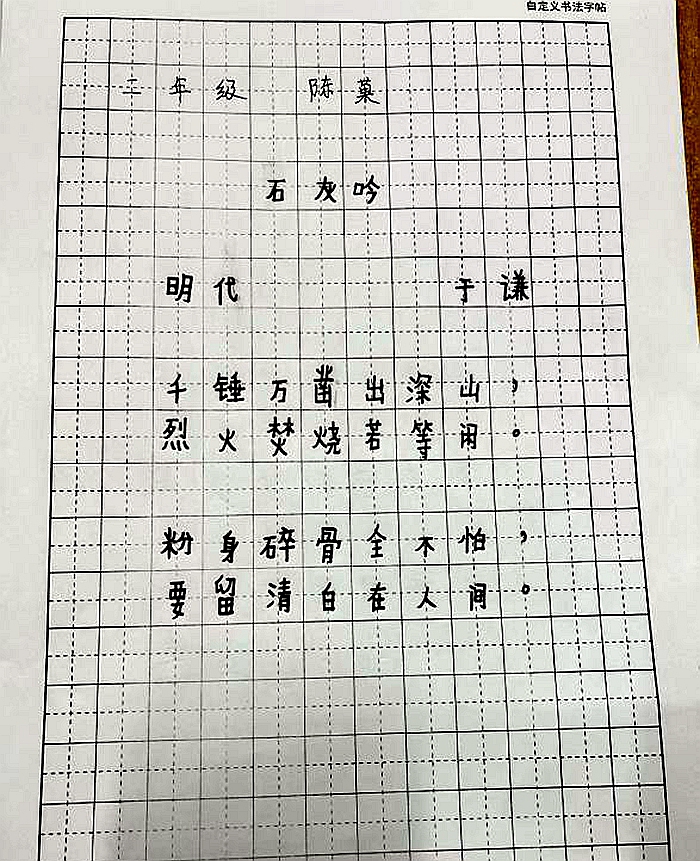 自定义书法字帖
二年级 陈菓
石灰吟
明代 于谦
千锤万凿出深山，
烈火焚烧若等闲。
粉身碎骨全不怕，
要留清白在人间。